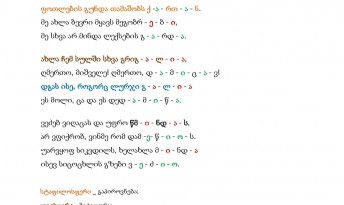 ფოთლების გუნდა თამაშობს ქ -ა - რთ - ა - ნ.
მე ახლა ბევრი მყავს მეგობრ - ე - ბ - ი,
მე სხვა არ მინდა ლექსების გ - ა - რდ - ა.
ახლა ჩემ სულში სხვა გრიგ - ა - ლ - ი - ა,
ღმერთო, მიშველე! ღმერთო, დ - ა - მ - ი - ც - ა - ვ!
დგას ისე, როგორც ლურჯი გ - ა - ლ - ი - ა
ეს მოლი, ცა და ეს დედ - ა - მ - ი - წ - ა.
ვეძებ ვიღაცას და უფრო წმ - ი - ნდ - ა - ს,
არ ვფიქრობ, ვინმე რომ დამ -ე- წ - ი - ო - ს.
უარვყოფ სიკვდილს, ხელახლა მ - ი - ნდ - ა
ისევ სიცოცხლის გზები ვ - ე - ძ - ი - ო.
სტაფილოსფერი _ გაპიროვნება;